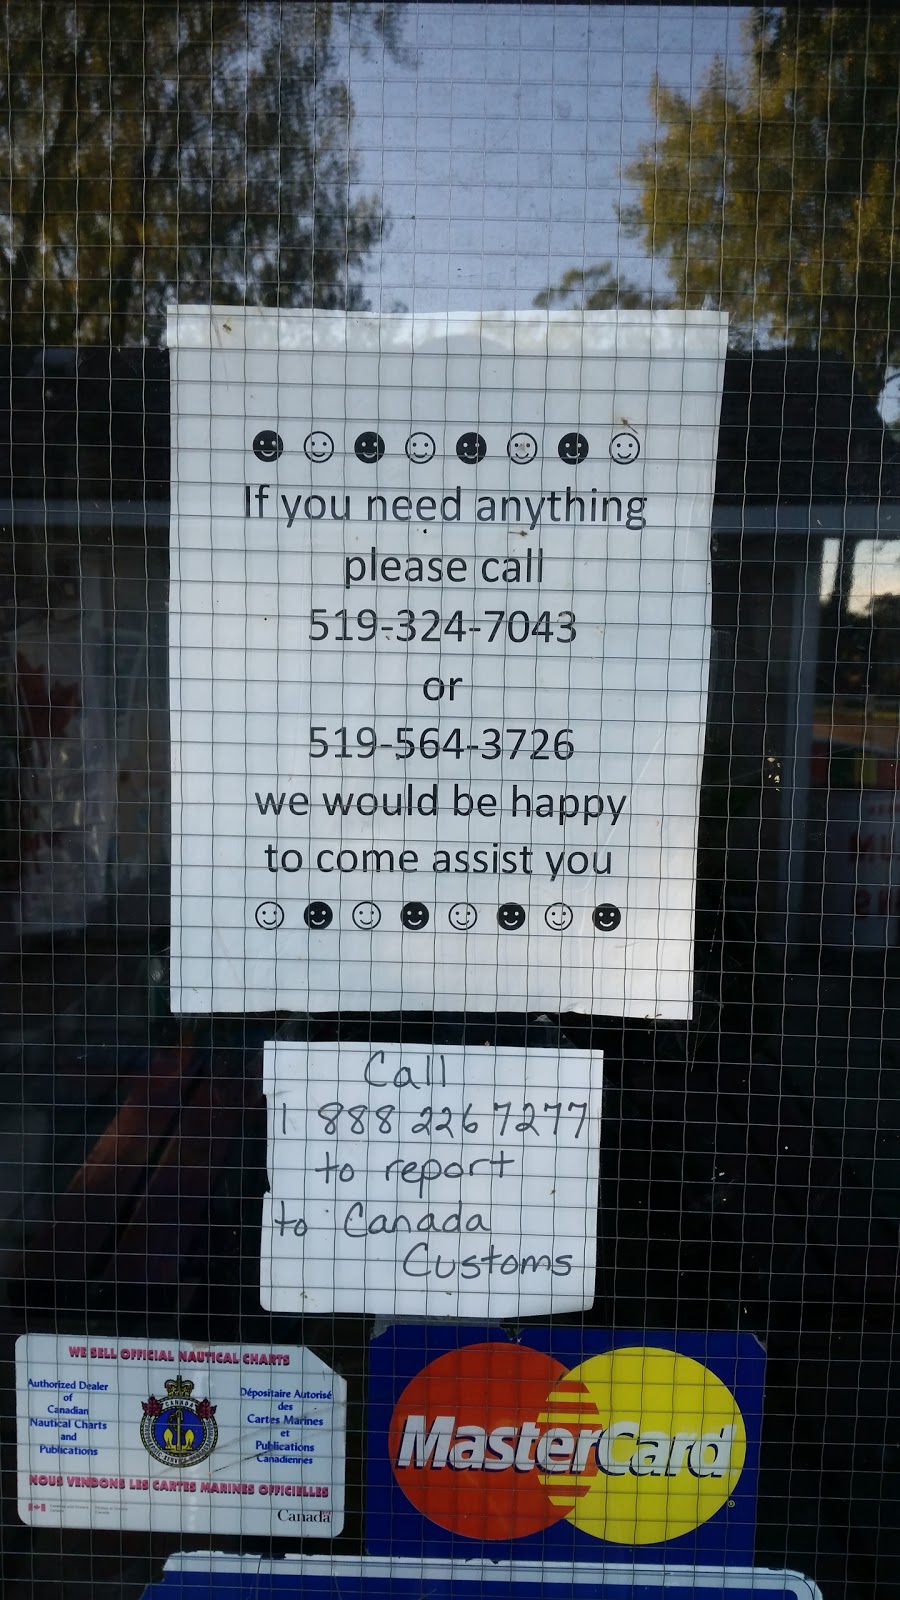 If you need anything
please call
519-324-7043
or
519-564-3726
we would be happy
to come assist you
Call
1 888 226 7277
to report
to Canada
Customs
WE SELL OFFICIAL NAUTICAL CHARTS
Authorized Dealer
of
Canadian
Nautical Charts
and
Publications
CANADA
Dépositaire Autorisé
des
Cartes Marines
et
Publications
Canadiennes
NOUS VENDONS LES CARTES MARINES OFFICIELLES
Canada
MasterCard